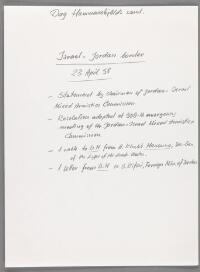 Dag Hammarskjölds saml.
Israel - Jordan border
23 April 58
- Statement by chairman of Jordan - Israel
Mixed Armistice Commission
- Resolution adopted at emergency
meeting of the Jordan - Israel Mixed Armistice
Commission
- 1 cable to D.H from A. Khalek Hassouna, Sec-Gen
of the League of the Arab States.
- 1 letter from D.H to S. Rifai, Foreign Min. of Jordan